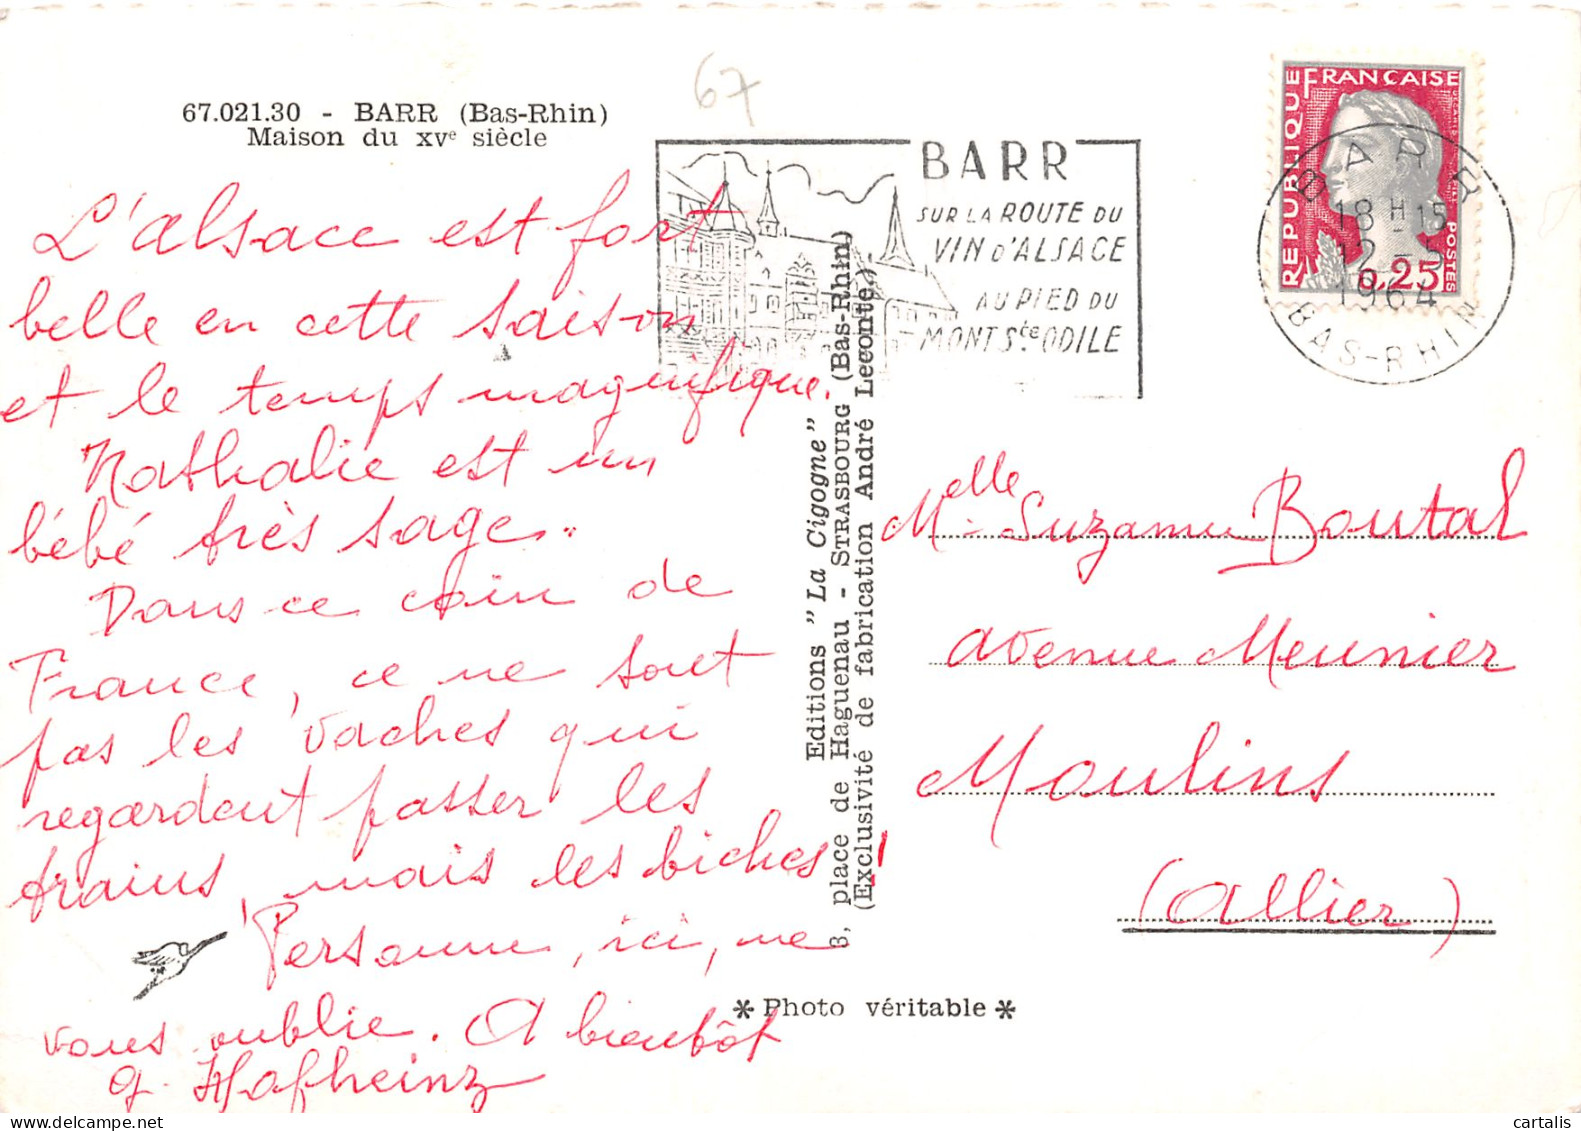 67
67.021.30 - BARR (Bas-Rhin)
Maison du XVe siècle
L'alsace est fort
belle en cette saison
et le temps magnifique.
Nathalie est un
bébé très sage.
Dans ce coin de
France, ce ne sont
pas les vaches qui
regardent passer les
trains, mais les biches !
Personne, ici, ne
vous oublie. A bientôt
Editions "La Cigogne"
3, place de Haguenau - STRASBOURG (Bas-Rhin)
(Exclusivité de fabrication André Leconte)
* Photo véritable *
BARR
SUR LA ROUTE DU
VIN D'ALSACE
AU PIED DU
MONT Ste ODILE
REPUBLIQUE FRANÇAISE
POSTES
0,25
BARR
18 H 15
12 - 5
1964
BAS-RHIN
Melle Suzanne Boutal
avenue Meunier
Moulins
(Allier)
cartalis